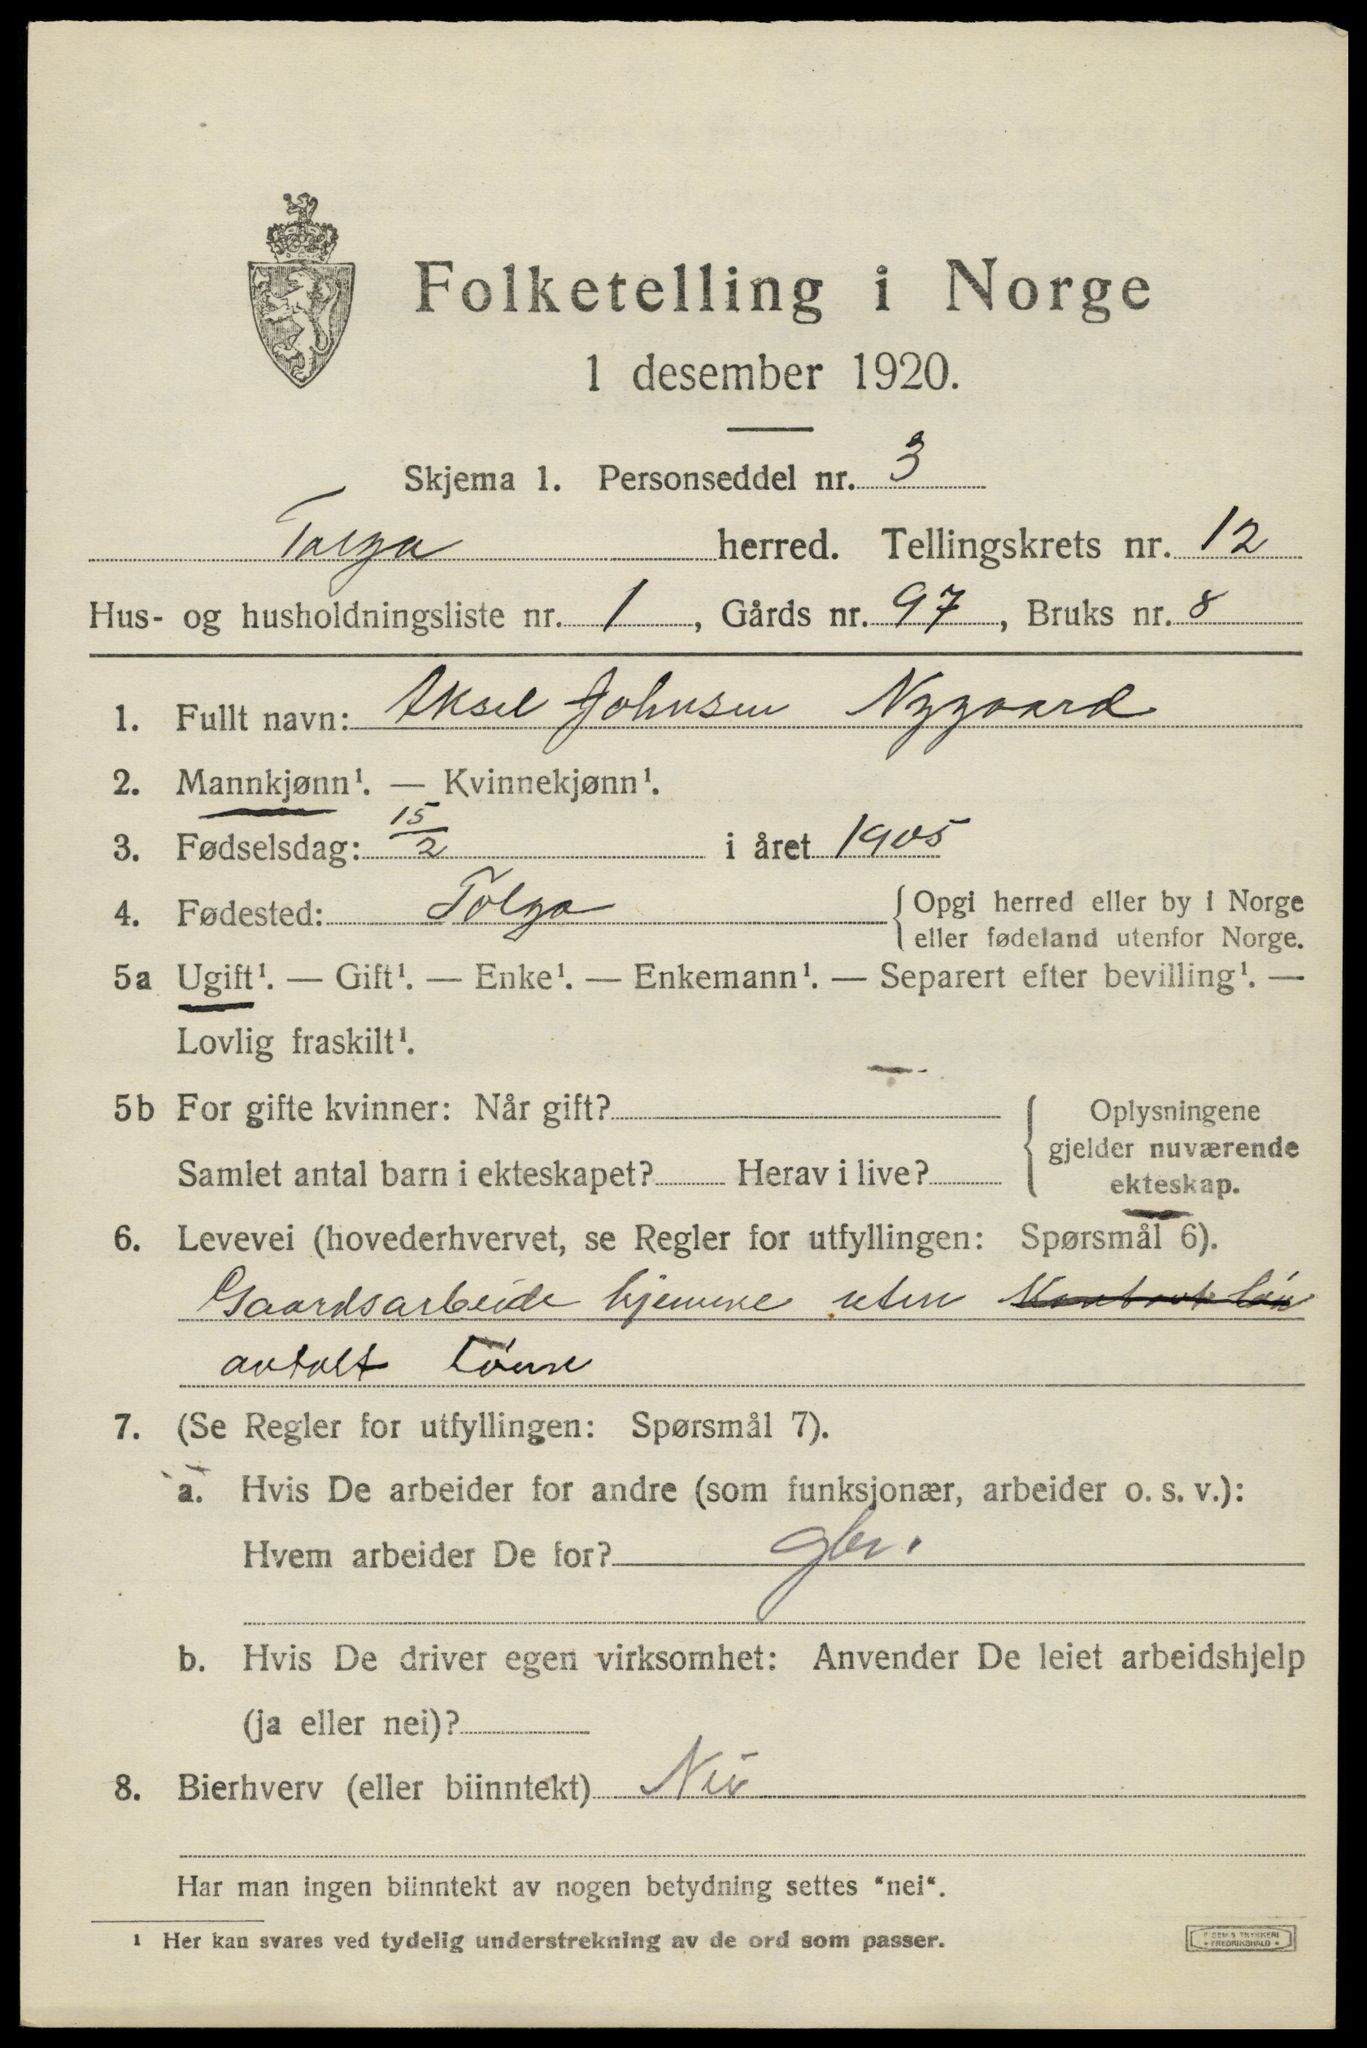 Folketelling i Norge
1 desember 1920.
Skjema 1. Personseddel nr. 3
Tolga herred. Tellingskrets nr. 12
Hus- og husholdningsliste nr. 1, Gårds nr. 97, Bruks nr. 8
1. Fullt navn: Aksel Johnsen Nygaard
2. Mannkjønn¹. — Kvinnekjønn¹.
3. Fødselsdag: 15/2 i året 1905
4. Fødested: Tolga { Opgi herred eller by i Norge
eller fødeland utenfor Norge.
5a Ugift¹. — Gift¹. — Enke¹. — Enkemann¹. — Separert efter bevilling¹. —
Lovlig fraskilt¹.
5b For gifte kvinner: Når gift? { Oplysningene
gjelder nuværende
Samlet antal barn i ekteskapet? Herav i live?
ekteskap.
6. Levevei (hovederhvervet, se Regler for utfyllingen: Spørsmål 6).
Gaardsarbeide hjemme uten
avtalt Lønn
7. (Se Regler for utfyllingen: Spørsmål 7).
a. Hvis De arbeider for andre (som funksjonær, arbeider o. s. v.):
Hvem arbeider De for? gbr.
b. Hvis De driver egen virksomhet: Anvender De leiet arbeidshjelp
(ja eller nei)?
8. Bierhverv (eller biinntekt) Nei
Har man ingen biinntekt av nogen betydning settes "nei".
1 Her kan svares ved tydelig understrekning av de ord som passer.